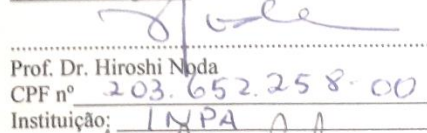 Prof. Dr. Hiroshi Noda
CPF nº 203.652.258-00
Instituição: INPA